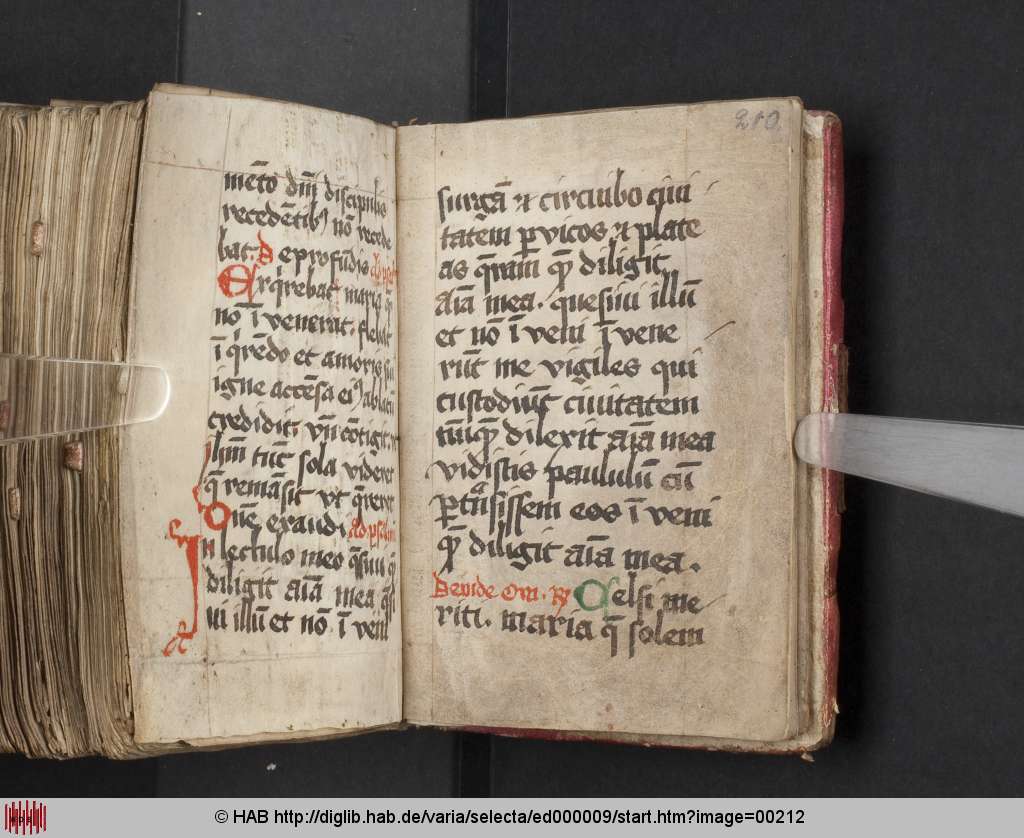 mēto dn̄i discipulis
recedētib⁹ nō recede
bat. De profūdis
Exq̄rebat maria q̄
nō īvenerat. flebat
ī q̄rēdo et amoris sui
igne accēsa ei⁹ ablatū
credidit. vn̄ cōtigit vt
illū tūc sola videret
q̄ remāsit vt q̄reret
Dn̄e exaudi Ad psalm̄
In lectulo meo q̄siui q̄
diligit aīa mea q̄si
ui illū et nō īveni
210
surgā ⁊ circuibo ciui
tatem ꝑ vicos ⁊ plate
as q̄ram q̄ꝫ diligit
aīa mea. quesiui illū
et nō īveni īvene
rūt me vigiles qui
custodiūt ciuitatem
nūq̄ꝫ dilexit aīa mea
vidistis paululū cū
ꝑtn̄sissem eos īveni
q̄ꝫ diligit aīa mea.
Deinde Om. R̷ Celsi me
riti. maria q̄ solem
© HAB http://diglib.hab.de/varia/selecta/ed000009/start.htm?image=00212